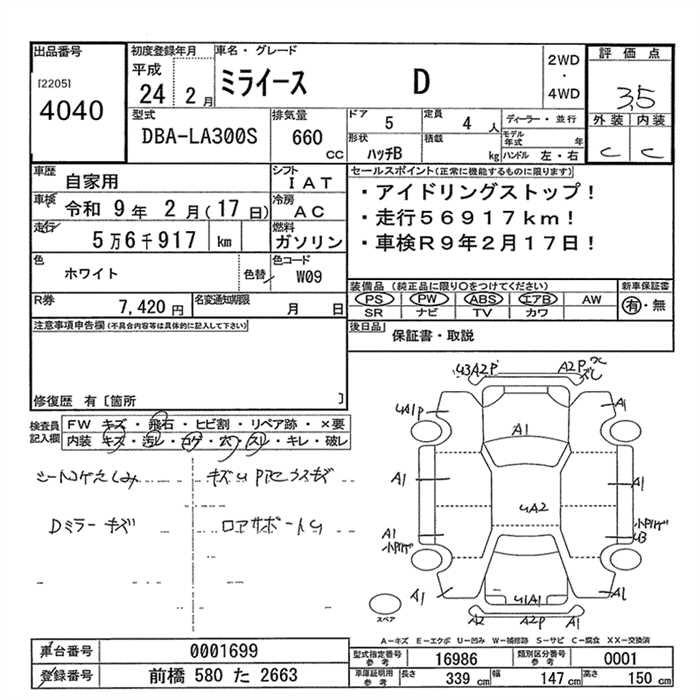 出品番号
[2205]
4040
初度登録年月
平成
24 2 月
車名・グレード
ミライース D
2WD
・
4WD
評価点
3.5
外装 内装
C C
型式
DBA-LA300S
排気量
660
cc
ドア
5
定員
4 人
形状
ハッチB
積載
kg
ディーラー・並行
モデル年式 年
ハンドル 左・右
車歴
自家用
シフト
IAT
車検 令和 9 年 2 月(17 日)
冷房
AC
走行
5万6千917 km
燃料
ガソリン
色
ホワイト
色替
色コード
W09
R券
7,420 円
名変通知期限
月 日
セールスポイント(正常に機能するものに限ります)
・アイドリングストップ!
・走行56917km!
・車検R9年2月17日!
装備品(純正品に限り〇をつけてください)
PS PW ABS エアB AW
SR ナビ TV カワ
新車保証書
有・無
後日品
保証書・取説
注意事項申告欄(不具合内容等は具体的に記入して下さい)
修復歴 有[箇所 ]
検査員
記入欄
FW キズ・飛石・ヒビ割・リペア跡・×要
内装 キズ・汚レ・コゲ・穴・スレ・キレ・破レ
Dミラーキズ
U3A2P
A2P
A1
A1
A1
A1
UA2
A1
U3
A1
UA1
A1
A2
A2P
A1
スペア
A-キズ E-エクボ U-凹み W-補修跡 S-サビ C-腐食 XX-交換済
車台番号
0001699
登録番号
前橋 580 た 2663
型式指定番号
参考
16986
類別区分番号
参考
0001
車庫証明用
参考
長さ 339 cm 幅 147 cm 高さ 150 cm